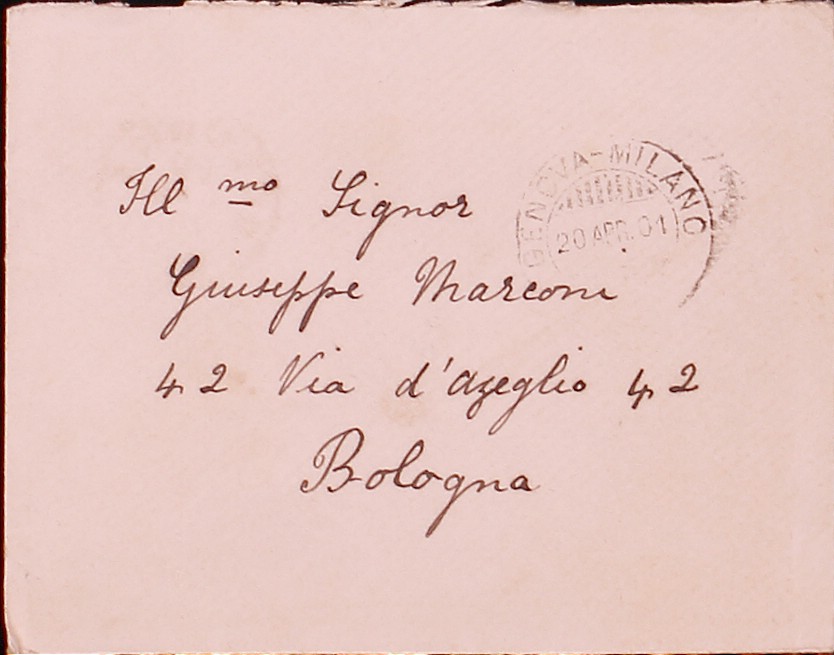 Ill mo Signor
GENOVA-MILANO
20 APR. 01
Giuseppe Marconi
42 Via d'Azeglio 42
Bologna